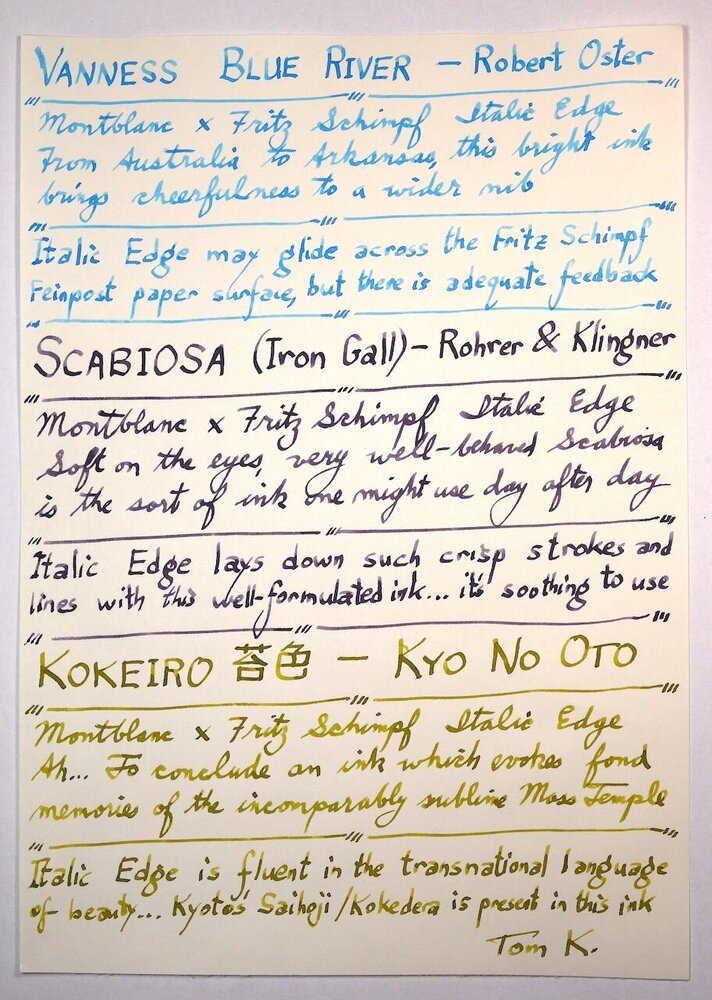 VANNESS BLUE RIVER – Robert Oster
Montblanc x Fritz Schimpf Italic Edge
From Australia to Arkansas, this bright ink
brings cheerfulness to a wider nib
Italic Edge may glide across the Fritz Schimpf
Feinpost paper surface, but there is adequate feedback
SCABIOSA (Iron Gall) – Rohrer & Klingner
Montblanc x Fritz Schimpf Italic Edge
Soft on the eyes, very well-behaved Scabiosa
is the sort of ink one might use day after day
Italic Edge lays down such crisp strokes and
lines with this well-formulated ink... it's soothing to use
KOKEIRO 苔色 – KYO NO OTO
Montblanc x Fritz Schimpf Italic Edge
Ah... To conclude an ink which evokes fond
memories of the incomparably sublime Moss Temple
Italic Edge is fluent in the transnational language
of beauty... Kyoto's Saihoji/Kokedera is present in this ink
Tom K.